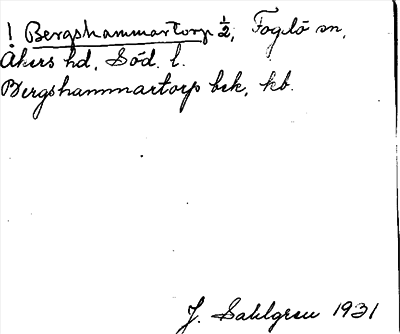 ! Bergshammartorp ½, Fogdö sn,
Åkers hd, Söd. l.
Bergshammartorp bsk, kb.
J. Sahlgren 1931